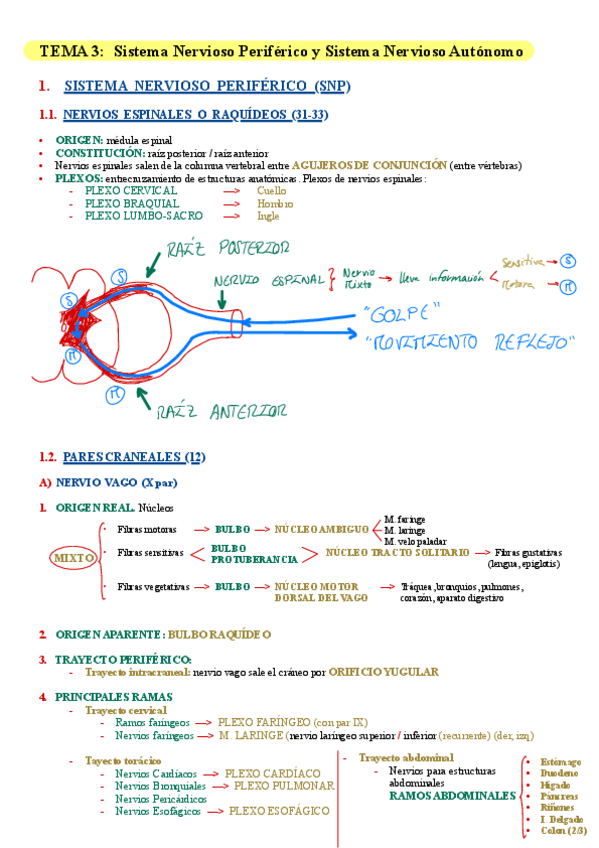 TEMA 3: Sistema Nervioso Periférico y Sistema Nervioso Autónomo
1. SISTEMA NERVIOSO PERIFÉRICO (SNP)
1.1. NERVIOS ESPINALES O RAQUÍDEOS (31-33)
• ORIGEN: médula espinal
• CONSTITUCIÓN: raíz posterior / raíz anterior
• Nervios espinales salen de la columna vertebral entre AGUJEROS DE CONJUNCIÓN (entre vértebras)
• PLEXOS: entrecruzamiento de estructuras anatómicas. Plexos de nervios espinales:
- PLEXO CERVICAL —> Cuello
- PLEXO BRAQUIAL —> Hombro
- PLEXO LUMBO-SACRO —> Ingle
RAÍZ POSTERIOR
NERVIO ESPINAL } Nervio Mixto → lleva información < Sensitiva → S
Motora → M
S
S
M
M
"GOLPE"
"MOVIMIENTO REFLEJO"
RAÍZ ANTERIOR
1.2. PARES CRANEALES (12)
A) NERVIO VAGO (X par)
1. ORIGEN REAL. Núcleos
MIXTO
• Fibras motoras —> BULBO —> NÚCLEO AMBIGUO
M. faringe
M. laringe
M. velo paladar
• Fibras sensitivas
BULBO
PROTUBERANCIA
NÚCLEO TRACTO SOLITARIO —> Fibras gustativas
(lengua, epiglotis)
• Fibras vegetativas —> BULBO —> NÚCLEO MOTOR —> Tráquea, bronquios, pulmones,
DORSAL DEL VAGO corazón, aparato digestivo
2. ORIGEN APARENTE: BULBO RAQUÍDEO
3. TRAYECTO PERIFÉRICO:
- Trayecto intracraneal: nervio vago sale el cráneo por ORIFICIO YUGULAR
4. PRINCIPALES RAMAS
- Trayecto cervical
- Ramos faríngeos —> PLEXO FARÍNGEO (con par IX)
- Nervios faríngeos —> M. LARINGE (nervio laríngeo superior / inferior (recurrente) (der, izq)
- Tayecto torácico
- Nervios Cardíacos —> PLEXO CARDÍACO
- Nervios Bronquiales —> PLEXO PULMONAR
- Nervios Pericárdicos
- Nervios Esofágicos —> PLEXO ESOFÁGICO
- Trayecto abdominal
- Nervios para estructuras
abdominales
RAMOS ABDOMINALES
• Estómago
• Duodeno
• Hígado
• Páncreas
• Riñones
• I. Delgado
• Colon (2/3)